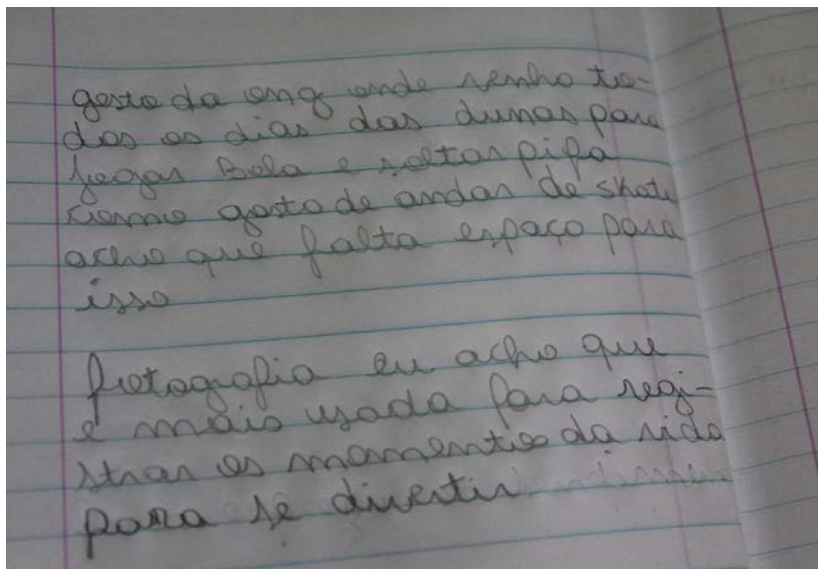 gosto da ong onde venho to-
dos os dias das dunas para
jogar Bola e soltar pipa
como gosto de andar de skate
acho que falta espaço para
isso
fotografia eu acho que
é mais usada para regi-
strar os momentos da vida
para se divertir